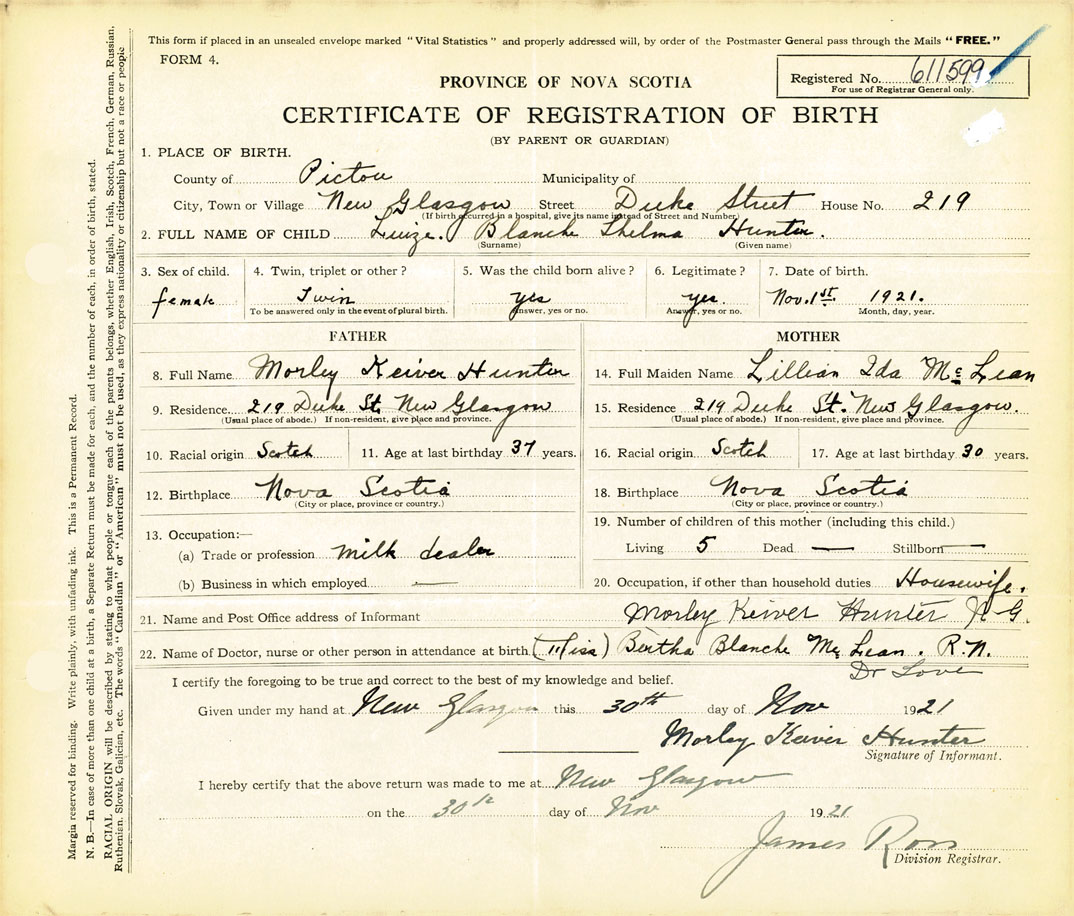 This form if placed in an unsealed envelope marked "Vital Statistics" and properly addressed will, by order of the Postmaster General pass through the Mails "FREE."
FORM 4.
Registered No. 611599
For use of Registrar General only.
PROVINCE OF NOVA SCOTIA
CERTIFICATE OF REGISTRATION OF BIRTH
(BY PARENT OR GUARDIAN)
1. PLACE OF BIRTH.
County of Pictou Municipality of
City, Town or Village New Glasgow Street Duke Street House No. 219
(If birth occurred in a hospital, give its name instead of Street and Number)
2. FULL NAME OF CHILD Blanche Thelma Hunter.
(Surname) (Given name)
3. Sex of child. 4. Twin, triplet or other? 5. Was the child born alive? 6. Legitimate? 7. Date of birth.
female Twin yes yes. Nov. 1st. 1921.
To be answered only in the event of plural birth. Answer, yes or no. Answer, yes or no. Month, day, year.
FATHER MOTHER
8. Full Name Morley Keiver Hunter 14. Full Maiden Name Lillian Ida Mc Lean
9. Residence 219 Duke St. New Glasgow 15. Residence 219 Duke St. New Glasgow.
(Usual place of abode.) If non-resident, give place and province. (Usual place of abode.) If non-resident, give place and province.
10. Racial origin Scotch 11. Age at last birthday 37 years. 16. Racial origin Scotch 17. Age at last birthday 30 years.
12. Birthplace Nova Scotia 18. Birthplace Nova Scotia
(City or place, province or country.) (City or place, province or country.)
13. Occupation:— 19. Number of children of this mother (including this child.)
(a) Trade or profession milk dealer Living 5 Dead — Stillborn —
(b) Business in which employed — 20. Occupation, if other than household duties Housewife.
21. Name and Post Office address of Informant Morley Keiver Hunter N G.
22. Name of Doctor, nurse or other person in attendance at birth (Miss) Bertha Blanche Mc Lean. R.N.
Dr Love
I certify the foregoing to be true and correct to the best of my knowledge and belief.
Given under my hand at New Glasgow this 30th day of Nov 1921
Morley Keiver Hunter
Signature of Informant.
I hereby certify that the above return was made to me at New Glasgow
on the 30th day of Nov 1921
James Ross
Division Registrar.
Margia reserved for binding. Write plainly, with unfading ink. This is a Permanent Record.
N. B.—In case of more than one child at a birth, a Separate Return must be made for each, and the number of each, in order of birth, stated.
RACIAL ORIGIN will be described by stating to what people or tongue each of the parents belongs, whether English, Irish, Scotch, French, German, Russian,
Ruthenian, Slovak, Galician, etc. The words "Canadian" or "American" must not be used, as they express nationality or citizenship but not a race or people